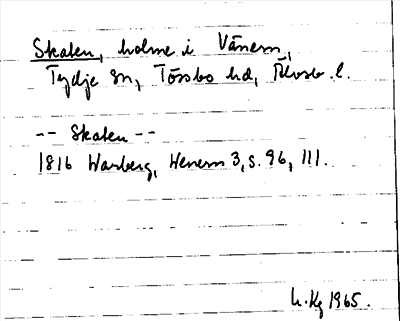 Skaten, holme i Vänern,
Tydje sn, Tössbo hd, Älvsb. l.
-- Skaten --
1816 Warberg, Wenern 3, s. 96, 111.
L. Kg 1965.